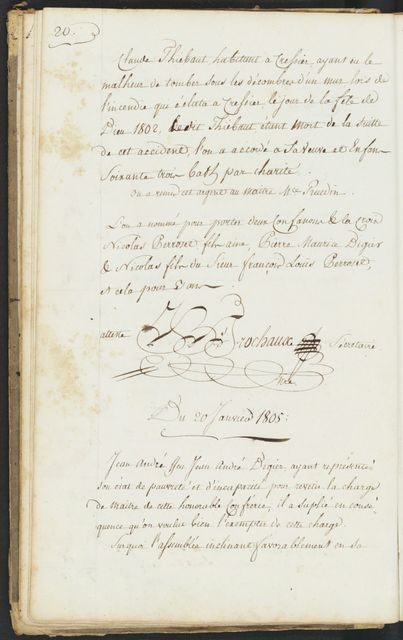 20.
Claude Thiébaut habitant à Cressier, ayant eu le
malheur de tomber sous les décombres d'un mur lors de
l'incendie qui éclata à Cressier, le jour de la fête de
Dieu 1802, ledit Thiébaut étant mort de la suitte
de cet accident, l'on a accordé à sa Veuve et Enfans
Soixante trois batz par charité.
On a remis cet argent au maitre Mce Ruedin.
L'on a nommé pour porter deux Confanons & la Croix
Nicolas Perroset fils ainé, Pierre Maurice Digier
& Nicolas fils du Sieur françois Louis Perroset,
et cela pour 3 ans.
atteste Trochaux Secretaire
Du 20 Janvier 1805:
Jean André ffeu Jean André Digier, ayant représenté
son état de pauvreté et d'incapacité pour revétir la charge
de maitre de cette honorable Confrérie, il a suplié en consé-
quence qu'on voulut bien l'exempter de cette charge.
Surquoi l'assemblée inclinant favorablement en sa